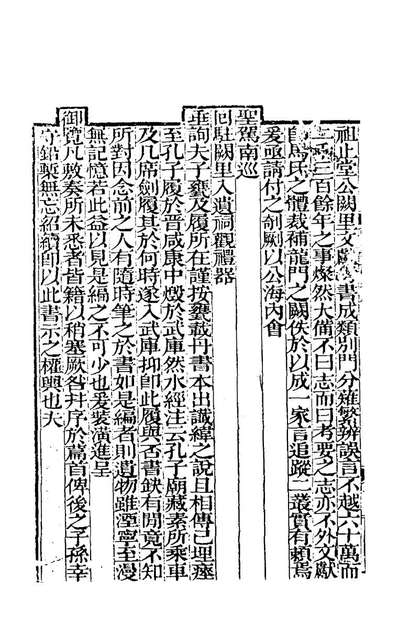 祖止堂公闕里文獻考書成類別門分雖繁辨誤言不越六十萬而
二千三百餘年之事燦然大備不曰志而曰考要之志亦不外文獻
馬氏之體裁補龍門之闕佚於以成一家言追蹤二叢質有賴焉
爰亟請付之剞劂以公海內會
聖駕南巡
回駐闕里入遺祠觀禮器
垂詢夫子甕及履所在謹按甕載丹書本出讖緯之說且相傳已埋瘞
至孔子履於晉咸康中燬於武庫然水經注云孔子廟藏素所乘車
及几席劍履其於何時遂入武庫抑即此履與否書缺有間竟不知
所對因念前之人有隨時筆之於書如是編者則遺物雖湮寧至漫
無記憶若此益以見是編之不可少也爰裝潢進呈
御覽凡敷奏所未悉者皆籍以稍塞厥咎并序於篇首俾後之子孫幸
守鉛槧無忘紹續即以此書示之權輿也夫